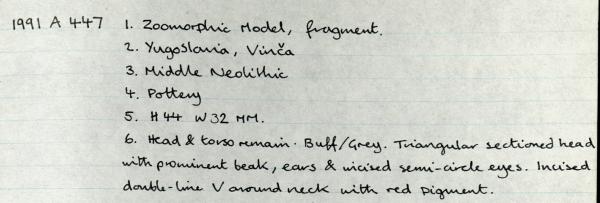 1991 A 447 1. Zoomorphic Model, fragment.
2. Yugoslavia, Vinča
3. Middle Neolithic
4. Pottery
5. H 44 W 32 MM.
6. Head & torso remain. Buff/Grey. Triangular sectioned head
with prominent beak, ears & incised semi-circle eyes. Incised
double-line V around neck with red pigment.